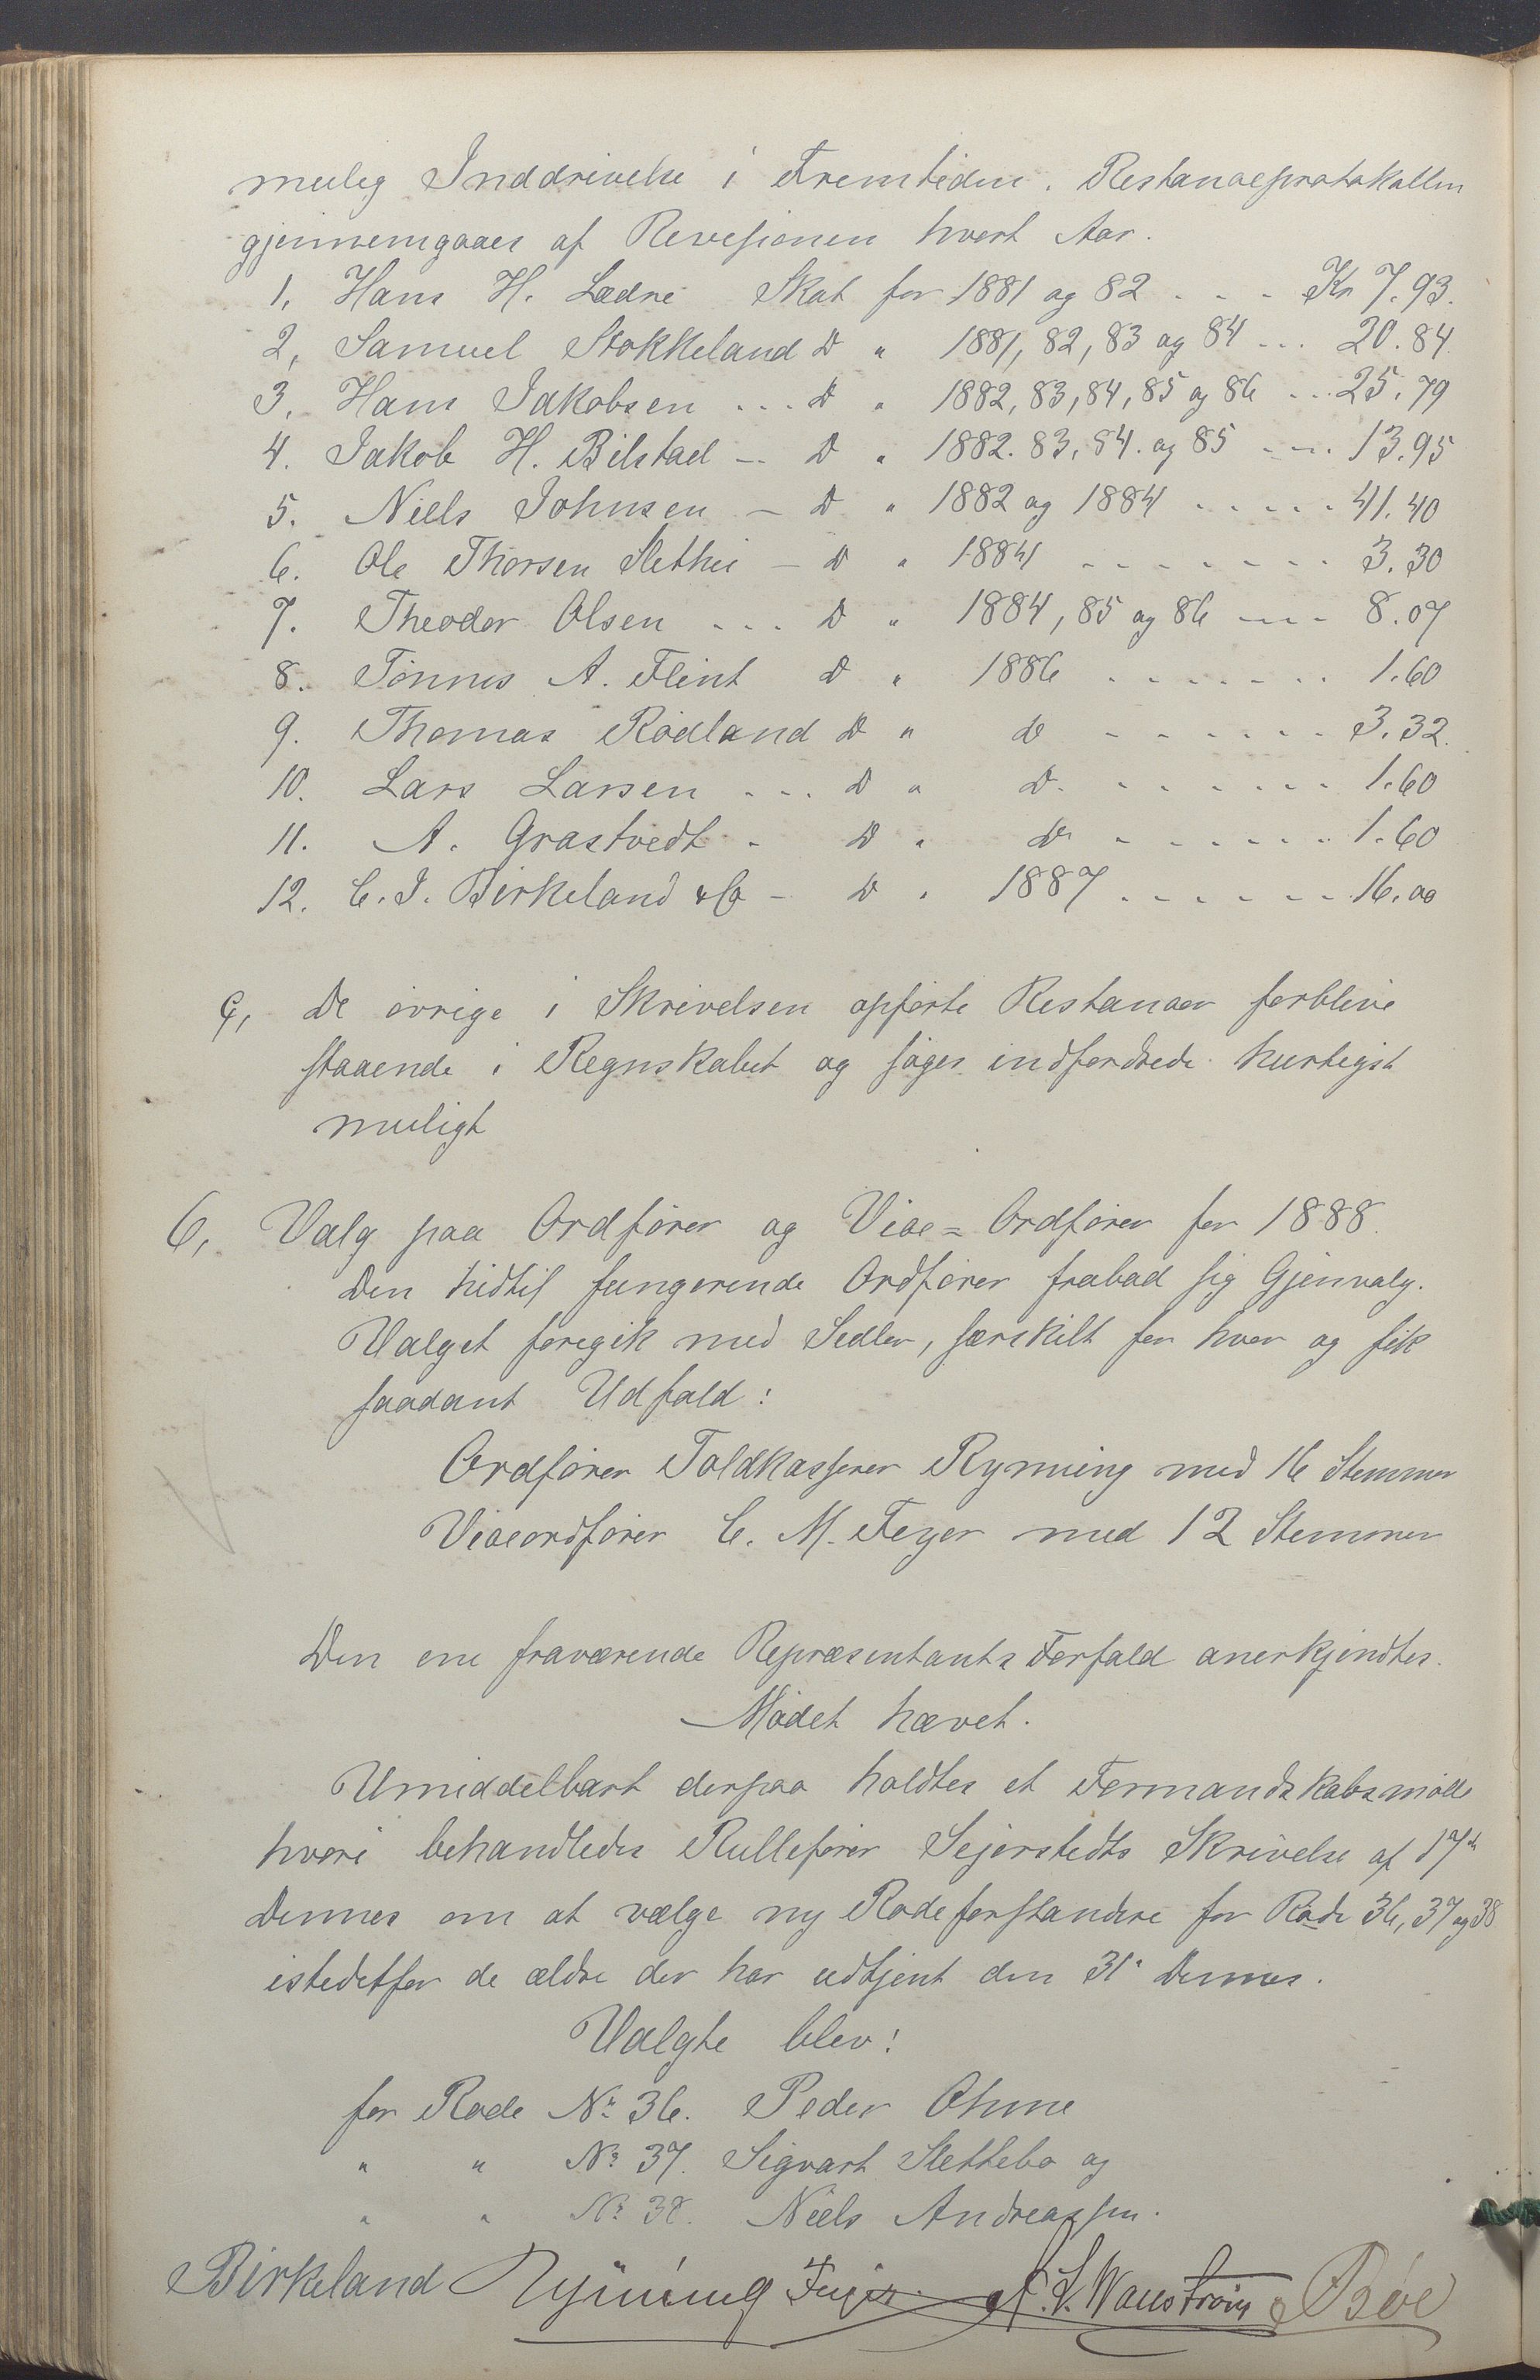 mulig Inddrivelse i Fremtiden. Restanceprotokollen
gjennemgaaes af Revisionen hvert Aar.
1, Hans H. Lædre Skat for 1881 og 82 - - - Kr 7.93.
2, Samuel Stokkeland Do " 1881, 82, 83 og 84 ... 20.84.
3, Hans Jakobsen ... Do " 1882, 83, 84, 85 og 86 ... 25.79
4. Jakob H. Bilstad — Do " 1882. 83, 84. og 85 - - - 13.95
5. Niels Johnsen — Do " 1882 og 1884 - - - - - 41.40
6. Ole Thorsen Slethei — Do " 1884 - - - - - - - 3.30
7. Theodor Olsen - - - Do " 1884, 85 og 86 - - - 8.07
8. Tönnes A. Flint Do " 1886 - - - - - - - 1.60
9. Thomas Rödland Do " Do - - - - - - - 3.32.
10. Lars Larsen - - - Do " Do - - - - - - - 1.60
11. A. Grastvedt - Do " Do - - - - - - - 1.60
12. C. I. Birkeland & Co - Do " 1887 - - - - - - 16.00
c, De övrige i Skrivelsen opförte Restancer forblive
staaende i Regnskabet og söges indfordrede hurtigst
muligt
6, Valg paa Ordförer og Vice= Ordförer for 1888.
Den hidtil fungerende Ordförer frabad sig Gjenvalg.
Valget foregik med Sedler, særskilt for hver og fik
saadant Udfald:
Ordförer Toldkasserer Rynning med 16 Stemmer
Viceordförer C. M. Feyer med 12 Stemmer
Den ene fraværende Repræsentants Forfald anerkjendtes.
Mödet hævet.
Umiddelbart derpaa holdtes et Formandskabsmöde
hvori behandledes Rulleförer Sejerstedts Skrivelse af 17de
Dennes om at vælge ny Rodeforstandere for Rode 36, 37 og 38
istedetfor de ældre der har udtjent den 31' Dennes.
Valgte blev:
for Rode No 36. Peder Ohme
" " No 37. Sigvart Slettebö og
" " No 38. Niels Andreassen.
Birkeland Rynning Feyer A. L. Wanström Böe